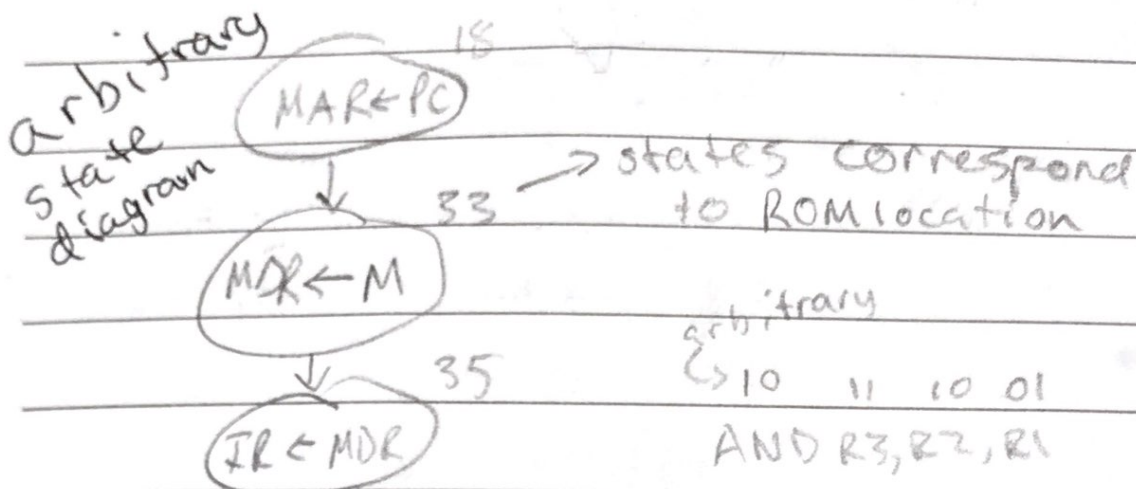 arbitrary
state
diagram
18
MAR ← PC
33 → states correspond
to ROM location
MDR ← M
arbitrary
35
10 11 10 01
IR ← MDR
AND R3, R2, R1